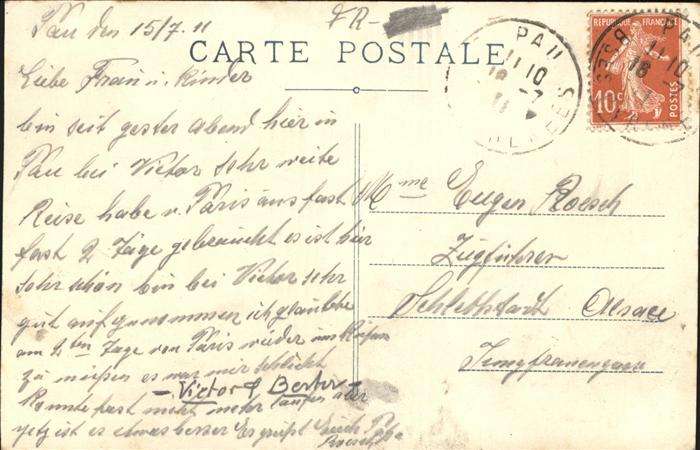 Pau den 15/7. 11
FR-
CARTE POSTALE
Liebe Frau u. Kinder
bin seit gester abend hier in
Pau bei Victor Sehr weite
Reise habe v. Paris aus fast
fast 2 Tage gebraucht es ist hier
sehr schön bin bei Victor sehr
gut aufgenommen ich glaubte
am 2ten Tage von Paris wieder ins
zu müssen es war mir schlecht
- Victor & Berthe -
konnte fast nicht mehr laufen aber
jetz ist es etwas besser Es grüßt Euch Papa
Roesch
PAU
11 10
16 -7
REPUBLIQUE FRANÇAISE
10c
POSTES
PAU
11 10
16
Mme Eugen Roesch
Zugführer
Schlettstadt Alsace
Jungfrauengasse